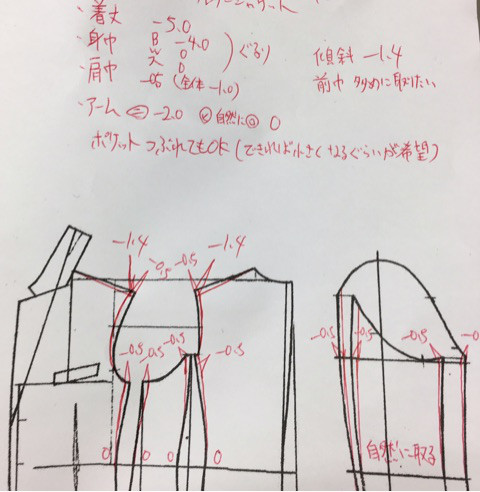 ・着丈 -5.0
・身巾 B -4.0
W 0 ぐるり
傾斜 -1.4
・肩巾 -0.5 (全体 -1.0)
前巾 多めに取りたい
・アーム -2.0 自然に 0
ポケット つぶれてもOK (できれば小さくなるぐらいが希望)
-1.4 -0.5 -0.5 -1.4
-0.5 -0.5 -0.5 -0.5
-0.5 -0.5
0 0 0 0
自然に取る